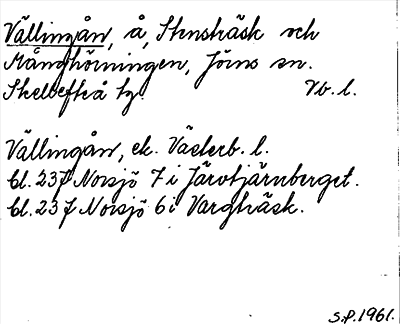 Vällingån, å, Stensträsk och
Månghörningen, Jörns sn.
Skellefteå tg. Vb. l.
Vällingån, ek. Västerb. l.
bl. 23J Norsjö 7 i Järvtjärnberget.
bl. 23J Norsjö 6 i Vargträsk.
S.P. 1961.